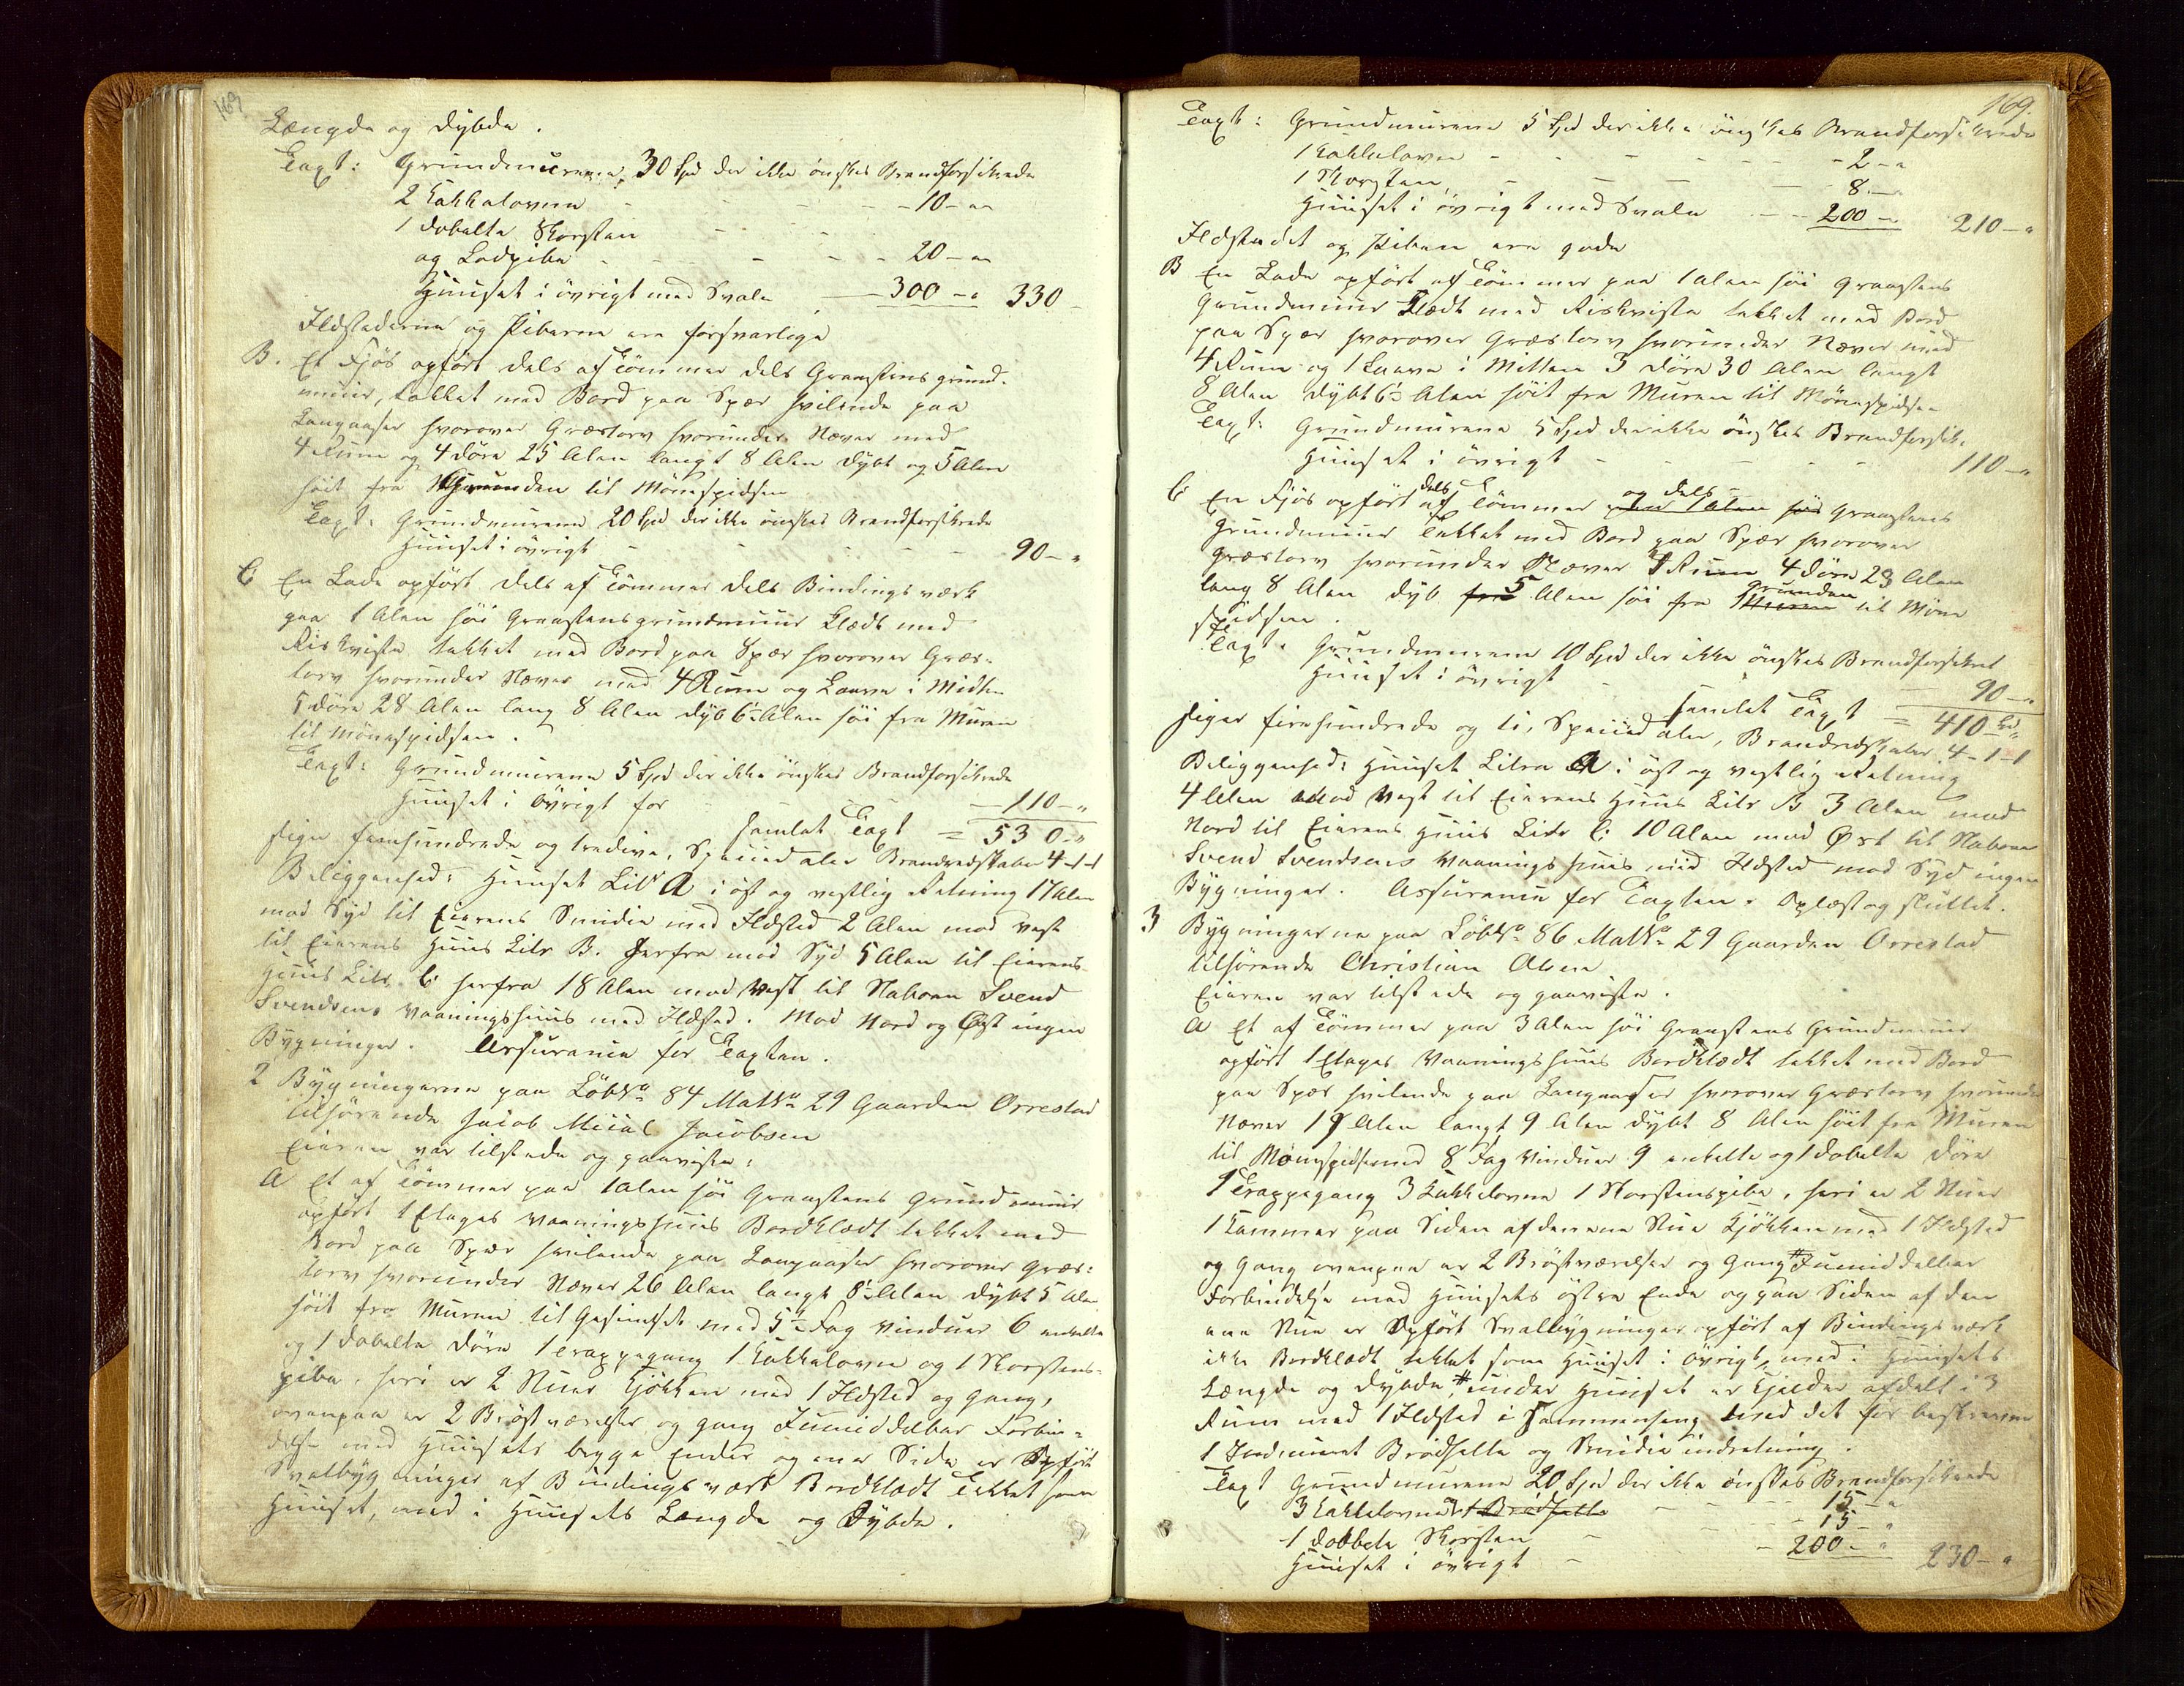 169
Længde og Dybde.
Taxt: Grundmurene 30 Spd der ikke ønskes Brandforsikrede
2 Kakkelovne - - - 10 - "
1 dobelte Skorsten
og Lodpibe - - - - 20 - "
Huuset i øvrigt med Svale - 300 - " 330 -
Ildstederne og Piberne ere forsvarlige
B. Et Fjøs opført dels af Tømmer dels Graastens grund-
muur, takket med Bord paa Spær hvilende paa
Langaaser hvorover Græstorv hvorunder Næver med
4 Rum og 4 Døre 25 Alen langt 8 Alen dybt og 5 Alen
høit fra Grunden til Mønespidsen
Taxt: Grundmurene 20 Spd der ikke ønskes Brandforsikrede
Huuset i øvrigt - - - - 90 - "
C En Lade opført dels af Tømmer dels Bindingsværk
paa 1 Alen høi Graastensgrundmuur Klædt med
Riskviste takket med Bord paa Spær hvorover Græs-
torv hvorunder Næver med 4 Rum og Laave i Midten
5 Døre 28 Alen lang 8 Alen dyb 6½ Alen høi fra Muren
til Mønespidsen.
Taxt: Grundmurene 5 Spd der ikke ønskes Brandforsikrede
Huuset i øvrigt for - 110 - "
samlet Taxt = 530 - "
siger femhundrede og tredive, Speciedaler Brandredskaber 4-1-1
Beliggenhed: Huuset Litr A i øst og vestlig Retning 17 Alen
mod Syd til Eierens Smidie med Ildsted 2 Alen mod vest
til Eierens Huus Litr B. herfra mod Syd 5 Alen til Eierens
Huus Litr. C herfra 18 Alen mod Vest til Naboen Svend
Svendsens Vaaningshuus med Ildsted. Mod Nord og Øst ingen
Bygninger. Assurance for Taxten.
2 Bygningerne paa LøbNo 84 MatNo 29 Gaarden Orrestad
tilhørende Jacob Mical Jacobsen
Eieren var tilstede og paaviste:
A Et af Tømmer paa 1 Alen høi Graastens grundmuur
opført 1 Etages Vaaningshuus Bordklædt takket med
Bord paa Spær hvilende paa Langaaser hvorover Græs-
torv hvorunder Næver 26 Alen langt 8½ Alen dybt 5 Alen
høit fra Muren til Gesimset med 5½ Fag Vinduer 6 enkelte
og 1 dobelte Døre 1 Trappegang 1 Kakkelovn og 1 Skorstens-
pibe, heri er 2 Stuer Kjøkken med 1 Ildsted og Gang,
ovenpaa er 2 Brøstværelser og gang I umiddelbar Forbin-
delse med Huusets begge Ender og ene Side er Opført
Svalbygninger af Bindingsværk Bordklædt Takket som
Huuset, med i Huusets Længde og Dybde.
169.
Taxt: Grundmurene 5 Spd der ikke ønskes Brandforsikrede
1 Kakkelovn - - - - - 2 - "
1 Skorsten, - - - - 8 -
Huuset i øvrigt med Svale - - 200 - 210 - "
Ildstedet og Piben ere gode
B En Lade opført af Tømmer paa 1 Alen høi Graastens
Grundmuur Klædt med Riskviste takket med Bord
paa Spær hvorover Græstorv hvorunder Næver med
4 Rum og 1 Laave i Mitten 3 Døre 30 Alen langt
8 Alen dybt 6½ Alen høit fra Muren til Mønespidsen
Taxt: Grundmurene 5 Spd der ikke ønskes Brandforsik.
Huuset i øvrigt - - - - 110 - "
C En Fjøs opført dels af Tømmer og dels paa 1 Alen høi Graastens
Grundmuur Takket med Bord paa Spær hvorover
Græstorv hvorunder Næver 4 Rum 4 Døre 23 Alen
lang 8 Alen dyb 5 Alen høi fra Grunden Muren til Møne
spidsen.
Taxt: Grundmurene 10 Spd der ikke ønskes Brandforsikret
Huuset i øvrigt - - 90 - "
samlet Taxt = 410 Spd
siger firehundrede og ti, Speciedaler, Brandredskaber 4-1-1
Beliggenhed: Huuset Litra A i øst og vestlig Retning
4 Alen mod Vest til Eierens Huus Litr B 3 Alen mod
Nord til Eierens Huus Litr C. 10 Alen mod Øst til Naboen
Svend Svendsens Vaaningshuus med Ildsted mod Syd ingen
Bygninger. Assurance for Taxten. Oplæst og sluttet.
3 Bygningerne paa LøbNo 86 MatNo 29 Gaarden Orrestad
tilhørende Christian Olsen
Eieren var tilstede og paaviste.
A Et af Tømmer paa 3 Alen høi Graastens Grundmuur
opført 1 Etages Vaaningshuus Bordklædt takket med Bord
paa Spær hvilende paa Langaaser hvorover Græstorv hvorunder
Næver 19 Alen langt 9 Alen dybt 8 Alen høit fra Muren
til Mønespidsen med 8 Fag Vinduer 9 enkelte og 1 dobelte Døre
1 Trappegang 3 Kakkelovne 1 Skorstenspibe, heri er 2 Stuer
1 Kammer paa Siden af den ene Stue Kjøkken med 1 Ildsted
og Gang ovenpaa er 2 Brøstværelser og Gang # I umiddelbar
Forbindelse med Huusets østre Ende og paa Siden af den
ene Stue er Opført Svalbygninger opført af Bindingsværk
ikke Bordklædt takket som Huuset i øvrigt, med i Huusets
Længde og Dybde, # under Huuset er Kjelder afdelt i 3
Rum med 1 Ildsted i Sammenhæng med det før beskrevne
1 Indmuret Brødhelle og Smidie indretning.
Taxt Grundmurene 20 Spd der ikke ønskes Brandforsikrede
3 Kakkelovne og 1 Brødhelle - - - 15 - "
1 dobbelt Skorsten - - - 15 - "
Huuset i øvrigt - - 200 - " 230 - "